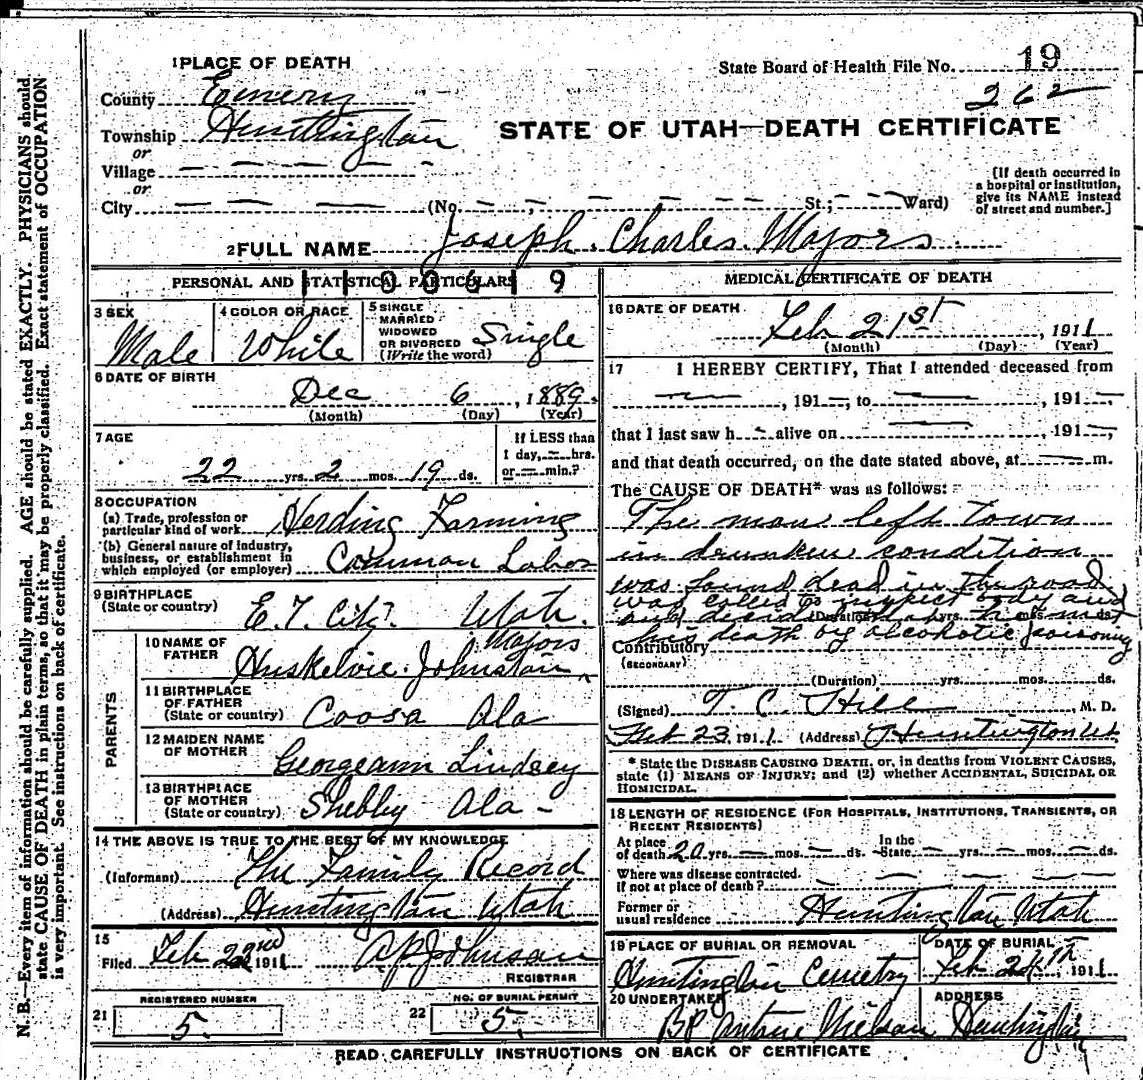 1 PLACE OF DEATH
State Board of Health File No. 19
County Emery
262
Township Huntington
STATE OF UTAH—DEATH CERTIFICATE
or
Village — — — —
or
City — — — (No. — — — — — St.; — — Ward)
[If death occurred in
a hospital or institution,
give its NAME instead
of street and number.]
2 FULL NAME Joseph Charles Majors
PERSONAL AND STATISTICAL PARTICULARS
3 SEX
Male
4 COLOR OR RACE
White
5 SINGLE
MARRIED
WIDOWED
OR DIVORCED
(Write the word)
Single
6 DATE OF BIRTH
Dec 6, 1889
(Month) (Day) (Year)
7 AGE
22 yrs. 2 mos. 19 ds.
If LESS than
1 day, — hrs.
or — min.?
8 OCCUPATION
(a) Trade, profession or
particular kind of work Herding Farming
(b) General nature of industry,
business, or establishment in
which employed (or employer) Common Labor
9 BIRTHPLACE
(State or country) E. T. City. Utah.
PARENTS
10 NAME OF
FATHER Huskelvie Johnston Majors
11 BIRTHPLACE
OF FATHER
(State or country) Coosa Ala
12 MAIDEN NAME
OF MOTHER Georgeann Lindsey
13 BIRTHPLACE
OF MOTHER
(State or country) Shebby Ala -
14 THE ABOVE IS TRUE TO THE BEST OF MY KNOWLEDGE
(Informant) The Family Record
(Address) Huntington Utah
15
Filed Feb 22nd 1911 A P Johnson
REGISTRAR
REGISTERED NUMBER
21 5.
NO. OF BURIAL PERMIT
22 5.
MEDICAL CERTIFICATE OF DEATH
16 DATE OF DEATH
Feb 21st, 1911
(Month) (Day) (Year)
17 I HEREBY CERTIFY, That I attended deceased from
—, 191—, to —, 191—,
that I last saw h— alive on —, 191—,
and that death occurred, on the date stated above, at — m.
The CAUSE OF DEATH* was as follows:
The man left town
in drunken condition
was found dead in the road
was called to inspect body and
(Duration) yrs. mos. ds.
his death by alcoholic poisoning
Contributory
(SECONDARY)
(Duration) yrs. mos. ds.
(Signed) T. C. Hill M. D.
Feb 23, 1911 (Address) Huntington Ut
* State the DISEASE CAUSING DEATH, or, in deaths from VIOLENT CAUSES,
state (1) MEANS OF INJURY; and (2) whether ACCIDENTAL, SUICIDAL OR
HOMICIDAL.
18 LENGTH OF RESIDENCE (FOR HOSPITALS, INSTITUTIONS, TRANSIENTS, OR
RECENT RESIDENTS)
At place
of death 20 yrs. — mos. — ds.
In the
State — yrs. — mos. — ds.
Where was disease contracted.
if not at place of death?
Former or
usual residence Huntington Utah
19 PLACE OF BURIAL OR REMOVAL
Huntington Cemetry
DATE OF BURIAL
Feb 24th, 1911
20 UNDERTAKER
Antone Nielson
ADDRESS
Huntington
READ CAREFULLY INSTRUCTIONS ON BACK OF CERTIFICATE
N. B.—Every item of information should be carefully supplied. AGE should be stated EXACTLY. PHYSICIANS should
state CAUSE OF DEATH in plain terms, so that it may be properly classified. Exact statement of OCCUPATION
is very important. See instructions on back of certificate.